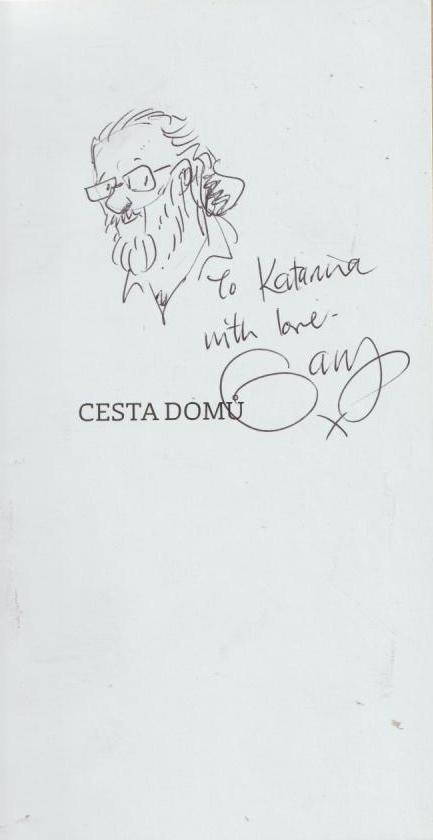 To Katarina
with love-
Gary
x
CESTA DOMŮ